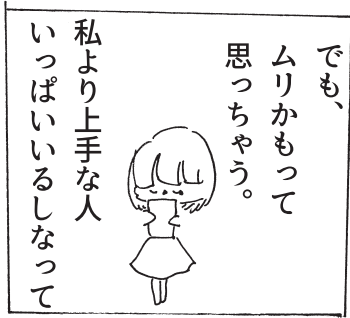 でも、
ムリかもって
思っちゃう。
私より上手な人
いっぱいいるしなって